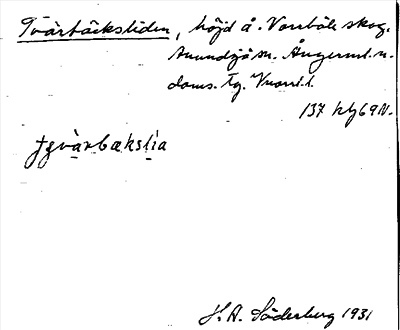 Tvärbäcksliden, höjd å. Norrböle skog.
Anundsjö sn. Ångerml. n.
doms. tg. Vnorrl. l.
137 kbf 69 N.
tvärbækslia
H. A. Söderberg 1931